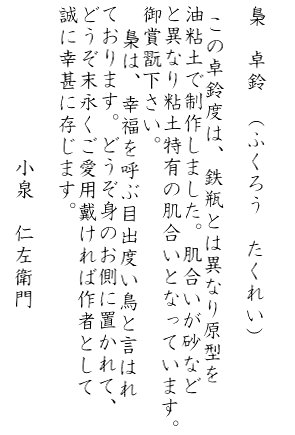 梟 卓鈴 (ふくろう たくれい)
この卓鈴度は、鉄瓶とは異なり原型を
油粘土で制作しました。肌合いが砂など
と異なり粘土特有の肌合いとなっています。
御賞翫下さい。
梟は、幸福を呼ぶ目出度い鳥と言はれ
ております。どうぞ身のお側に置かれて、
どうぞ末永くご愛用戴ければ作者として
誠に幸甚に存じます。
小泉 仁左衛門